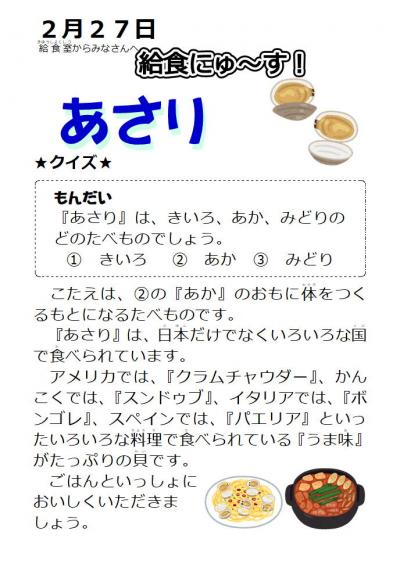 ２月２７日
給食室からみなさんへ
給食にゅ～す！
あさり
★クイズ★
もんだい
『あさり』は、きいろ、あか、みどりの
どのたべものでしょう。
①　きいろ　②　あか　③　みどり
こたえは、②の『あか』のおもに体をつく
るもとになるたべものです。
『あさり』は、日本だけでなくいろいろな国
で食べられています。
アメリカでは、『クラムチャウダー』、かん
こくでは、『スンドゥブ』、イタリアでは、『ボ
ンゴレ』、スペインでは、『パエリア』といっ
たいろいろな料理で食べられている『うま味』
がたっぷりの貝です。
ごはんといっしょに
おいしくいただきま
しょう。